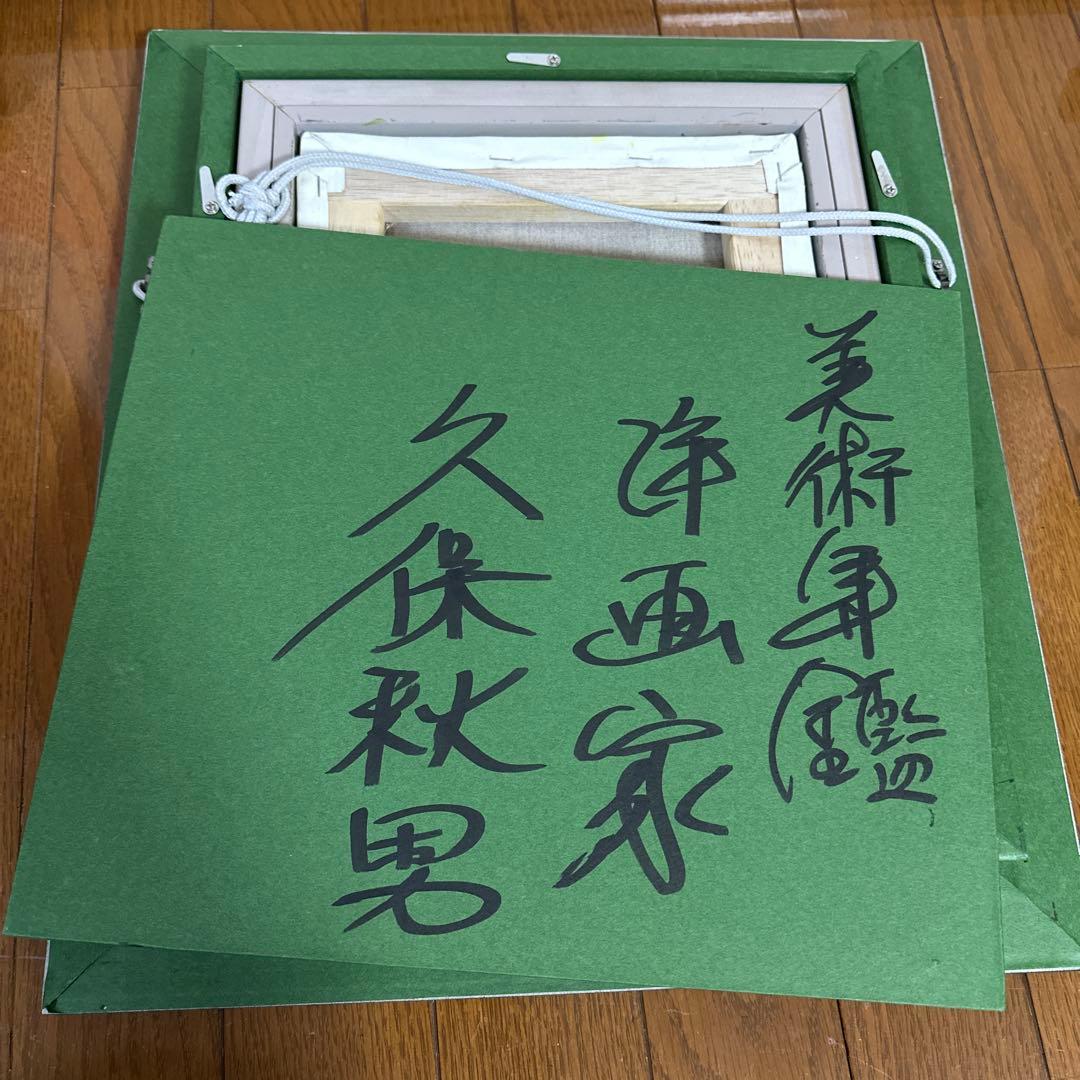 美術年鑑
洋画家
久保秋男